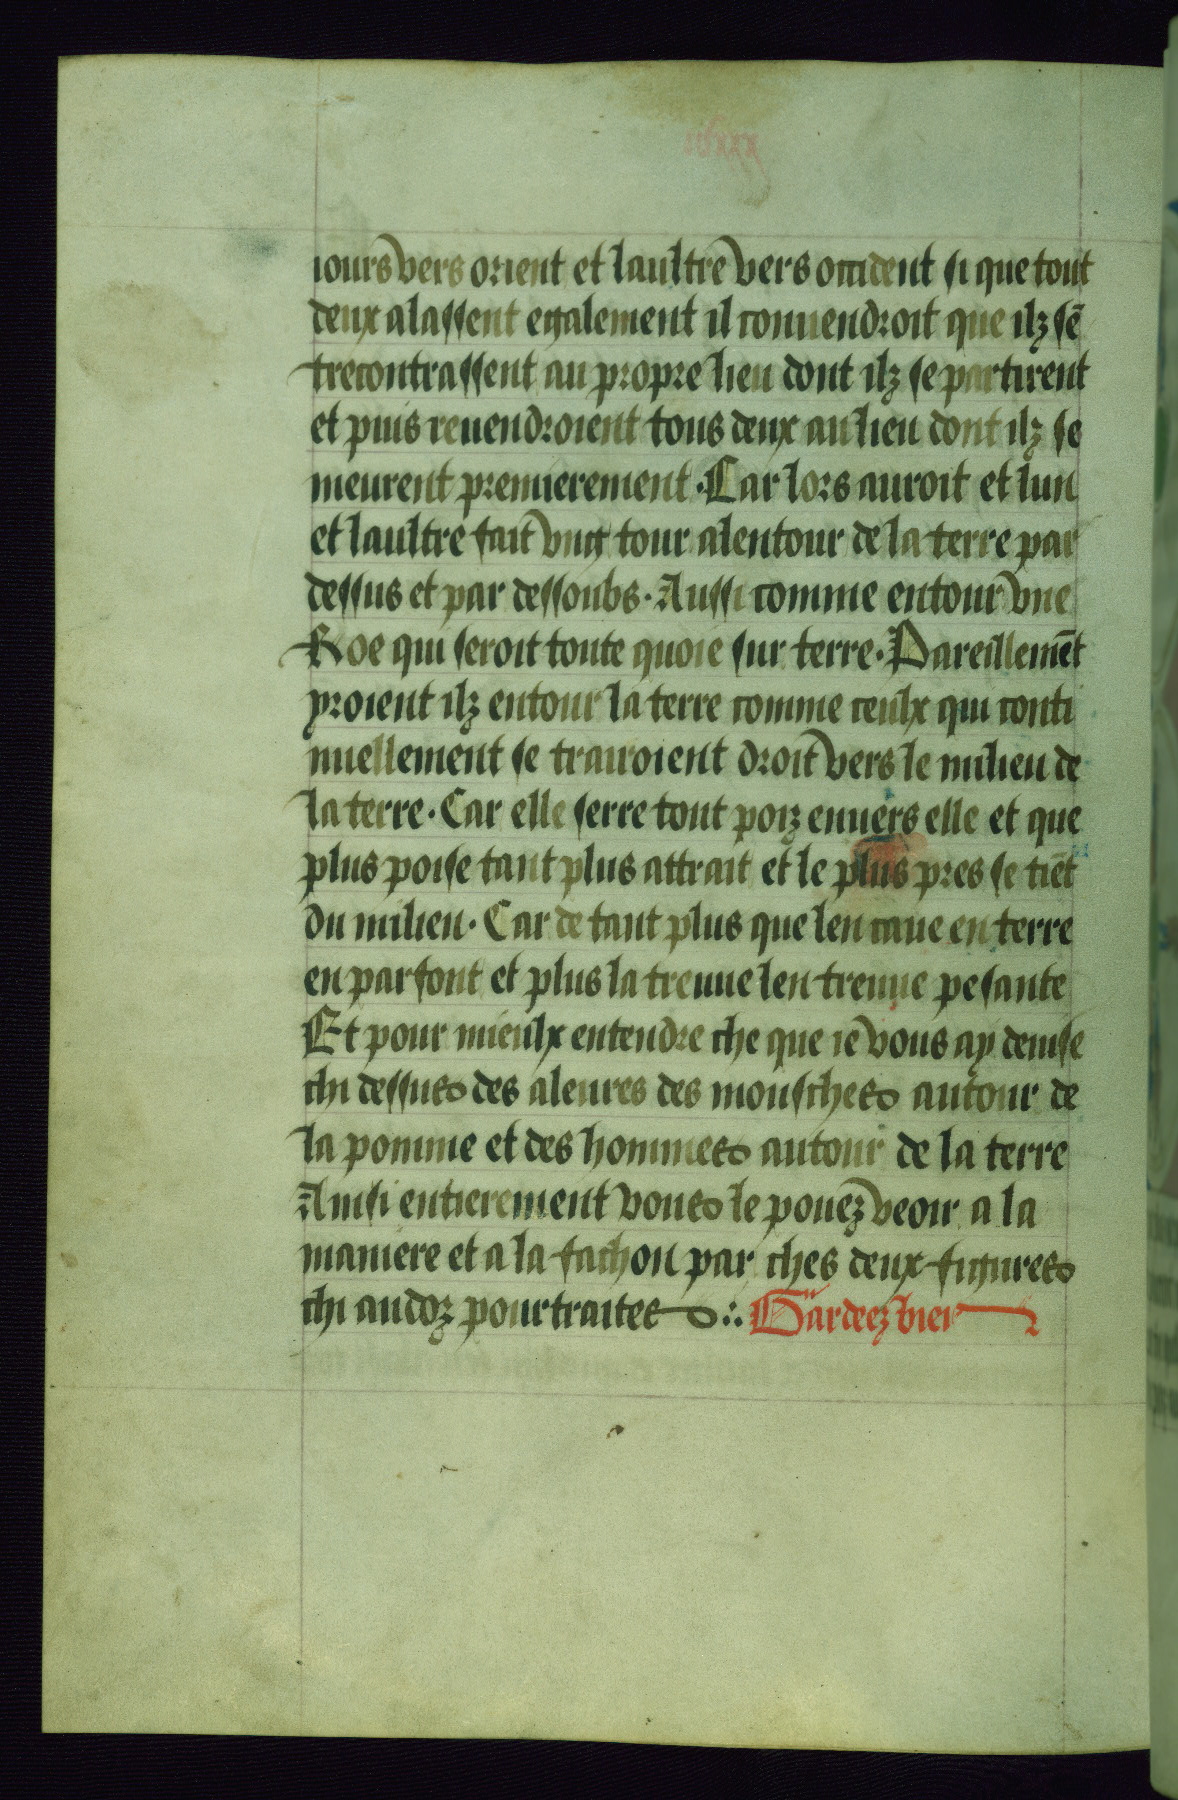 iours vers orient et laultre vers occident si que tout
deux alassent egalement il conuendroit que ilz sē
trecontrassent au propre lieu dont ilz se partirent
et puis reuendroient tous deux au lieu dont ilz se
meurent premierement · Car lors auroit et lun
et laultre fait vng tour alentour de la terre par
dessus et par dessoubs · Aussi comme entour vne
Roe qui seroit toute quoie sur terre · Pareillemēt
yroient ilz entour la terre comme ceulx qui conti
nuellement se trairoient droit vers le milieu de
la terre · Car elle serre tout poiz enuers elle et que
plus poise tant plus attrait et le plus pres se tiēt
du milieu · Car de tant plus que len caue en terre
en parfont et plus la treuue len treuue pesante
Et pour mieulx entendre che que ie vous ay deuise
chi dessus des aleures des mousches autour de
la pomme et des hommes autour de la terre
Ainsi entierement vous le pouez veoir a la
maniere et a la fachon par ches deux figures
chi au doz pourtraites ∴ Gardeez bien